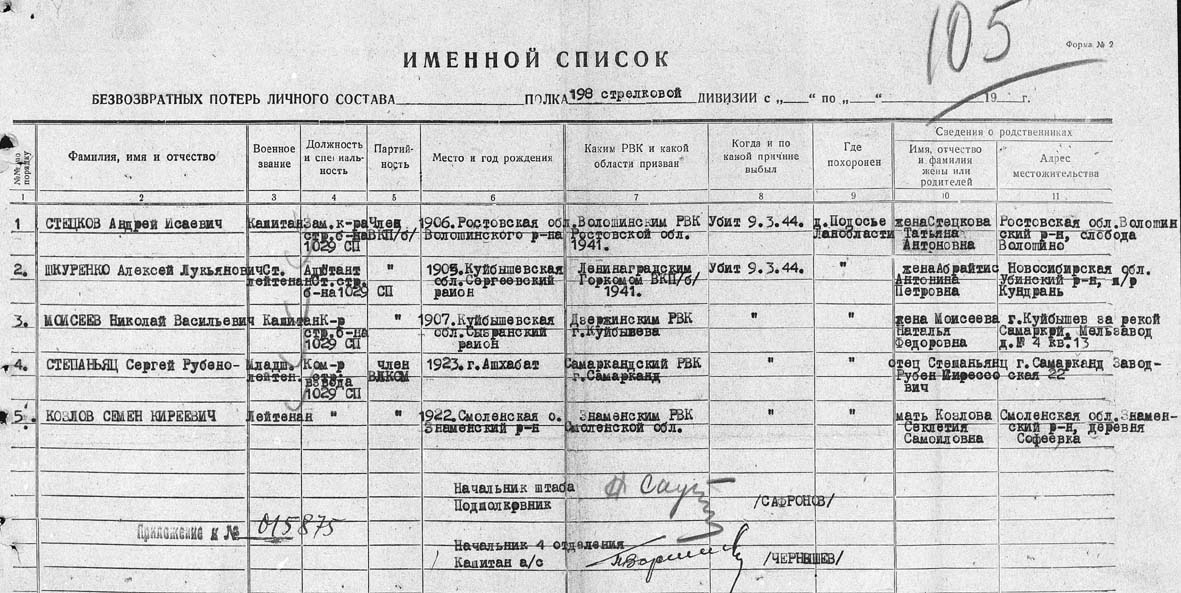 105
Форма № 2
ИМЕННОЙ СПИСОК
БЕЗВОЗВРАТНЫХ ПОТЕРЬ ЛИЧНОГО СОСТАВА ПОЛКА 198 стрелковой ДИВИЗИИ с „ “ по „ “ 19 г.
№№ по порядку
Фамилия, имя и отчество
Военное звание
Должность и специальность
Партийность
Место и год рождения
Каким РВК и какой области призван
Когда и по какой причине выбыл
Где похоронен
Сведения о родственниках
Имя, отчество и фамилия жены или родителей
Адрес местожительства
1 2 3 4 5 6 7 8 9 10 11
1 СТЕЦКОВ Андрей Исаевич Капитан Зам.к-ра Член 1906.Ростовская обл.Волошинским РВК Убит 9.3.44. д.Подосье жена Стецкова Ростовская обл.Волошин
стр.б-на ВКП/б/ Волошинского р-на Ростовской обл. Ленобласти Татьяна ский р-н, слобода
1029 СП 1941. Антоновна Волошино
2. ШКУРЕНКО Алексей Лукьянович Ст. Адютант " 1905.Куйбышевская Ленинградским Убит 9.3.44. " жена Абрайтис Новосибирская обл.
лейтенант Ст.стр. обл.Сергеевский Горкомом ВКП/б/ Антонина Убинский р-н, п/р
б-на 1029 СП район 1941. Петровна Кундрань
3. МОИСЕЕВ Николай Васильевич Капитан К-р " 1907.Куйбышевская Дзержинским РВК " " жена Моисеева г.Куйбышев за рекой
стр.б-на обл.Сызранский г.Куйбышева Наталья Самаркой. Мельзавод
1029 СП район Федоровна д.№ 4 кв.13
4. СТЕПАНЬЯЦ Сергей Рубено- Младш. Ком-р член 1923.г.Ашхабат Самаркандский РВК " " отец Степаньянц г.Самарканд Завод-
лейтен. стр. ВЛКСМ г.Самарканд Рубен ская 22
взвода вич
1029 СП
5. КОЗЛОВ СЕМЕН КИРЕЕВИЧ Лейтенан " " 1922.Смоленская о. Знаменским РВК " " мать Козлова Смоленская обл.Знамен-
Знаменский р-н Смоленской обл. Секлетия ский р-н, деревня
Самоиловна Софеевка
Начальник штаба
Подполковник /САФРОНОВ/
Приложение к № 015875
Начальник 4 отделения
Капитан а/с /ЧЕРНЫШЕВ/